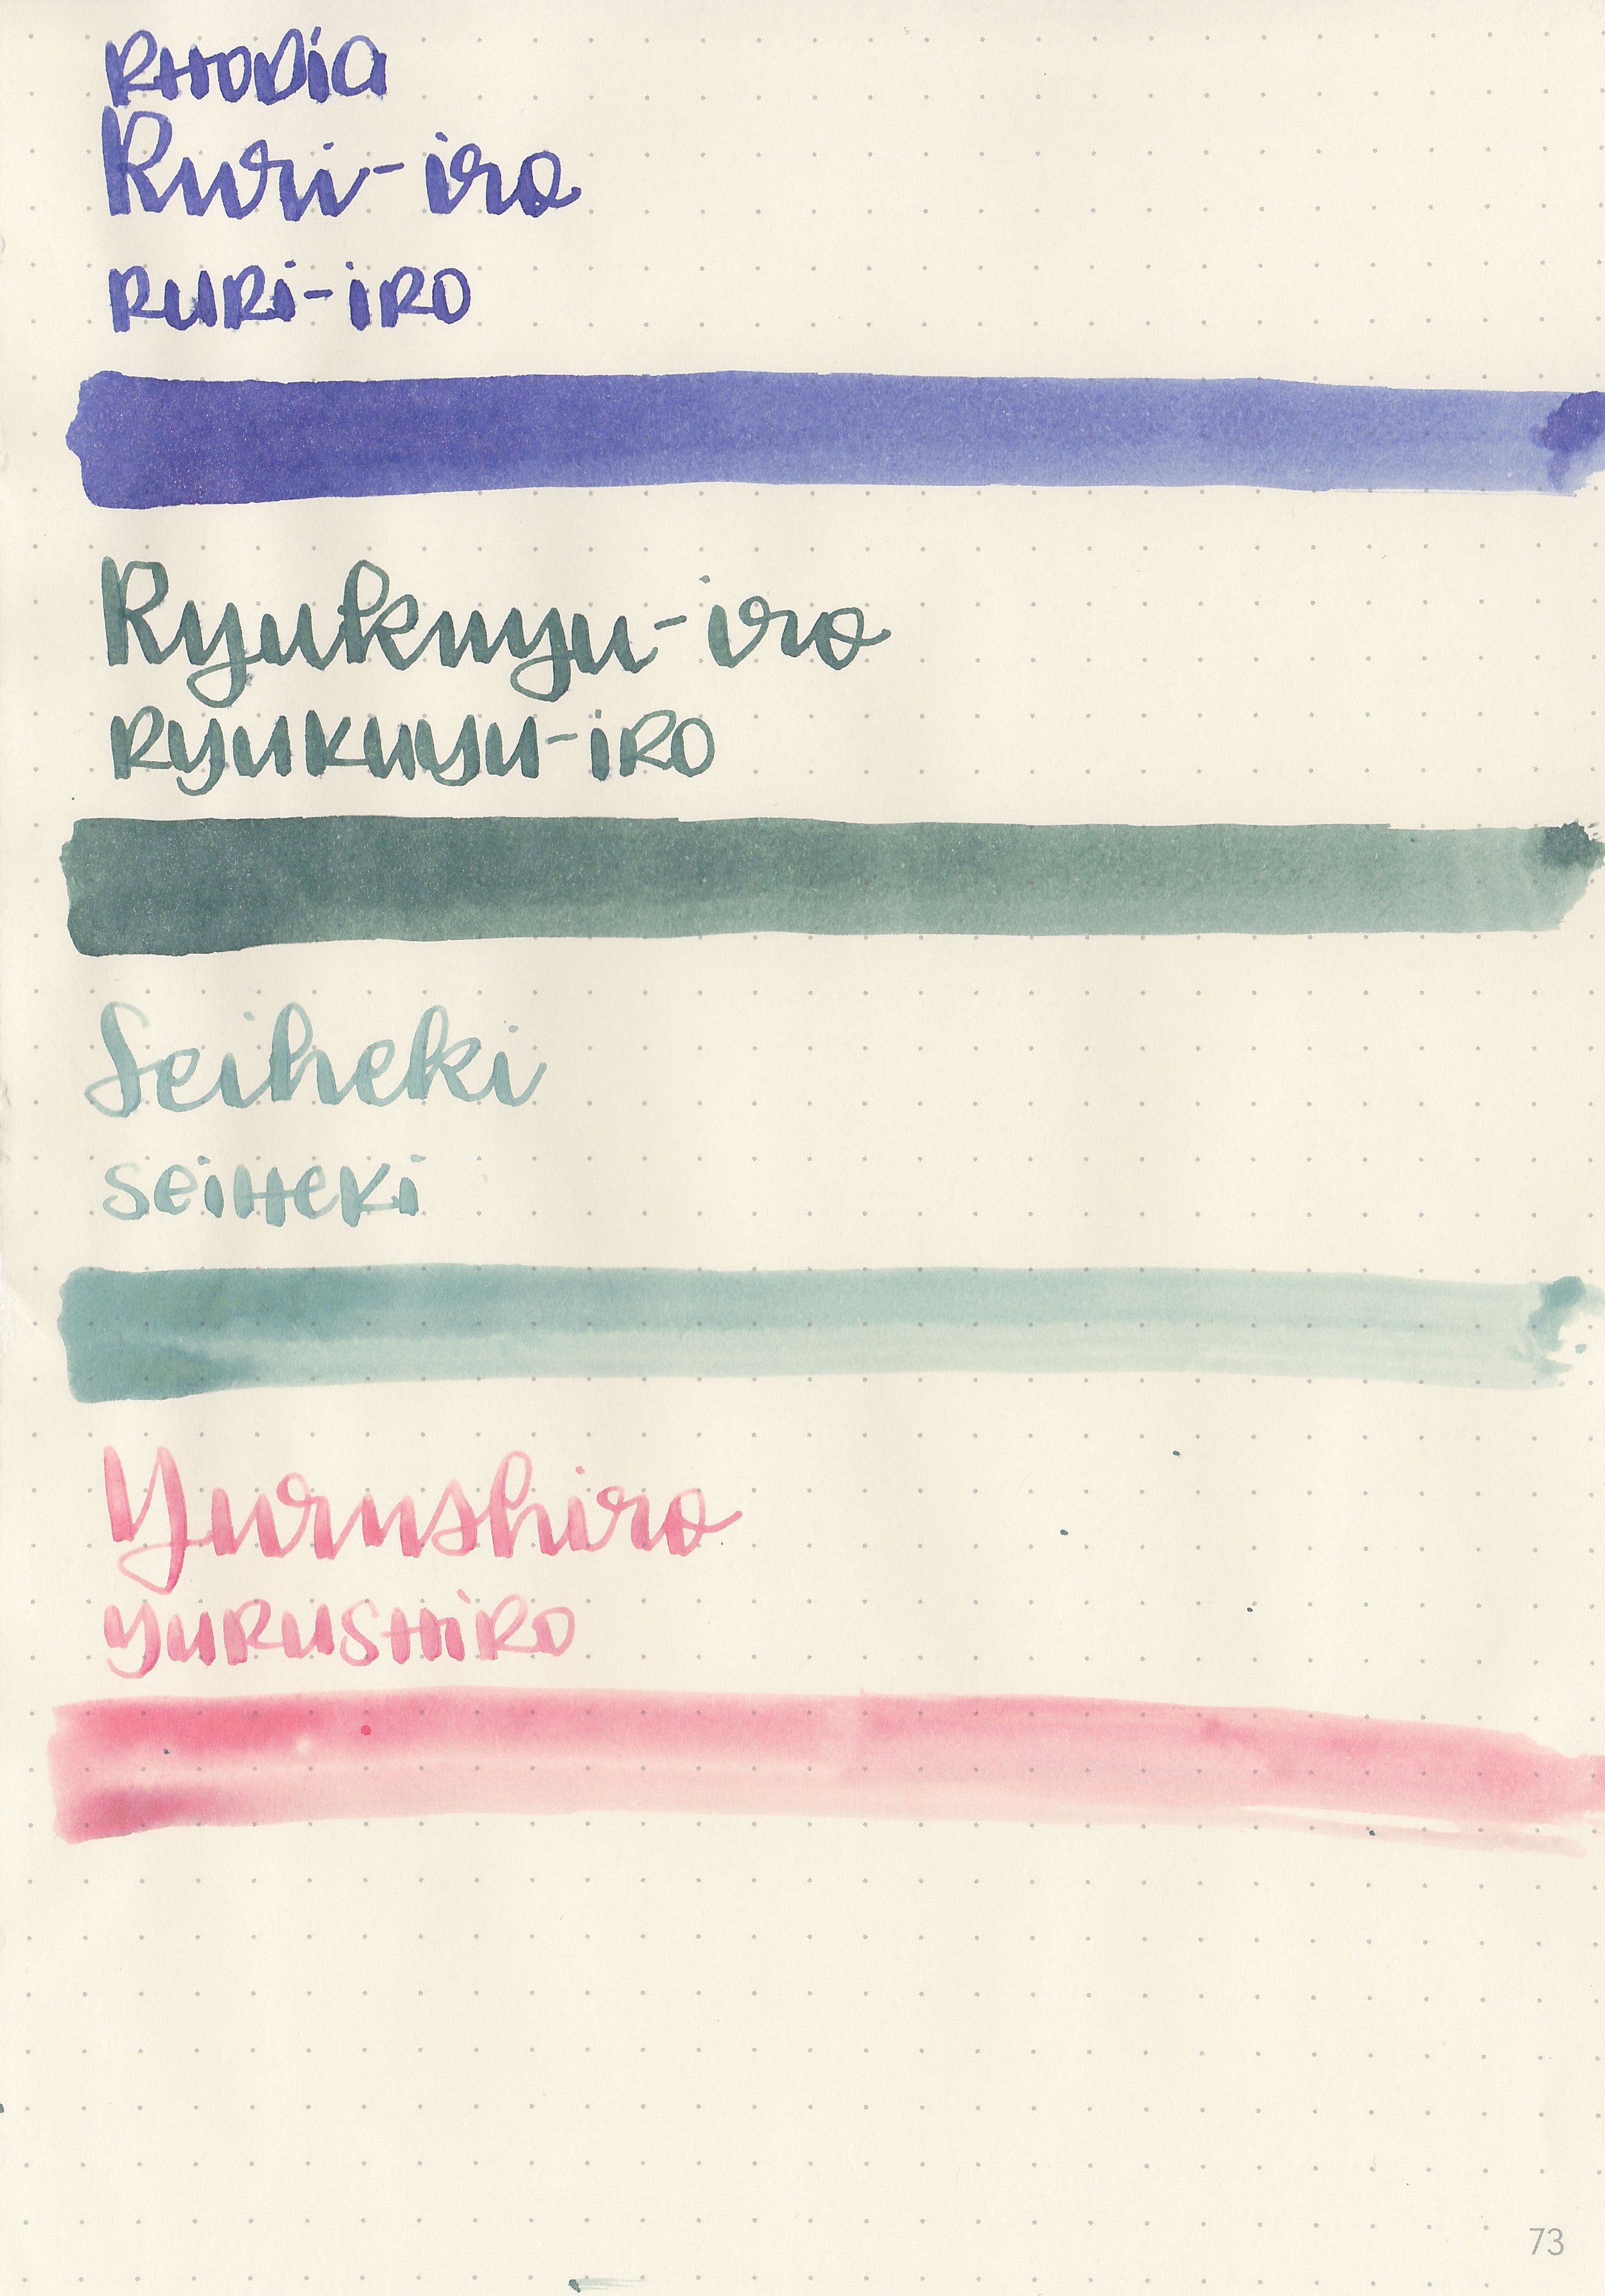 RHODiA
Ruri-iro
RURi-iRO
Ryukuyu-iro
RYUKUYU-iRO
Seiheki
SeiHeKi
Yurushiro
YURUSHiRO
73